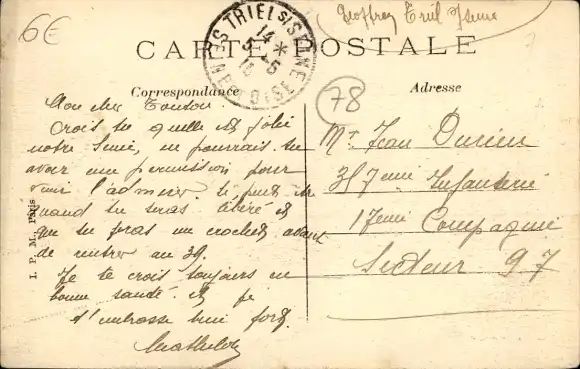 6€
Geoffroy Triel s/Seine
TRIEL S/SEINE
14 *
5-6
SEINE-ET-OISE
CARTE POSTALE
Correspondance
Adresse
78
Mon cher Tonton.
Crois tu qu'elle est jolie
notre Seine, ne pourrais-tu
avoir une permission pour
venir l'admirer
quand tu seras libéré et
que tu feras un crochet avant
de rentrer au 39.
Je te crois toujours en
bonne santé et je
t'embrasse bien fort.
Mr Jean Durieu
317eme Infanterie
17eme Compagnie
Secteur 97
I. P. M., Paris